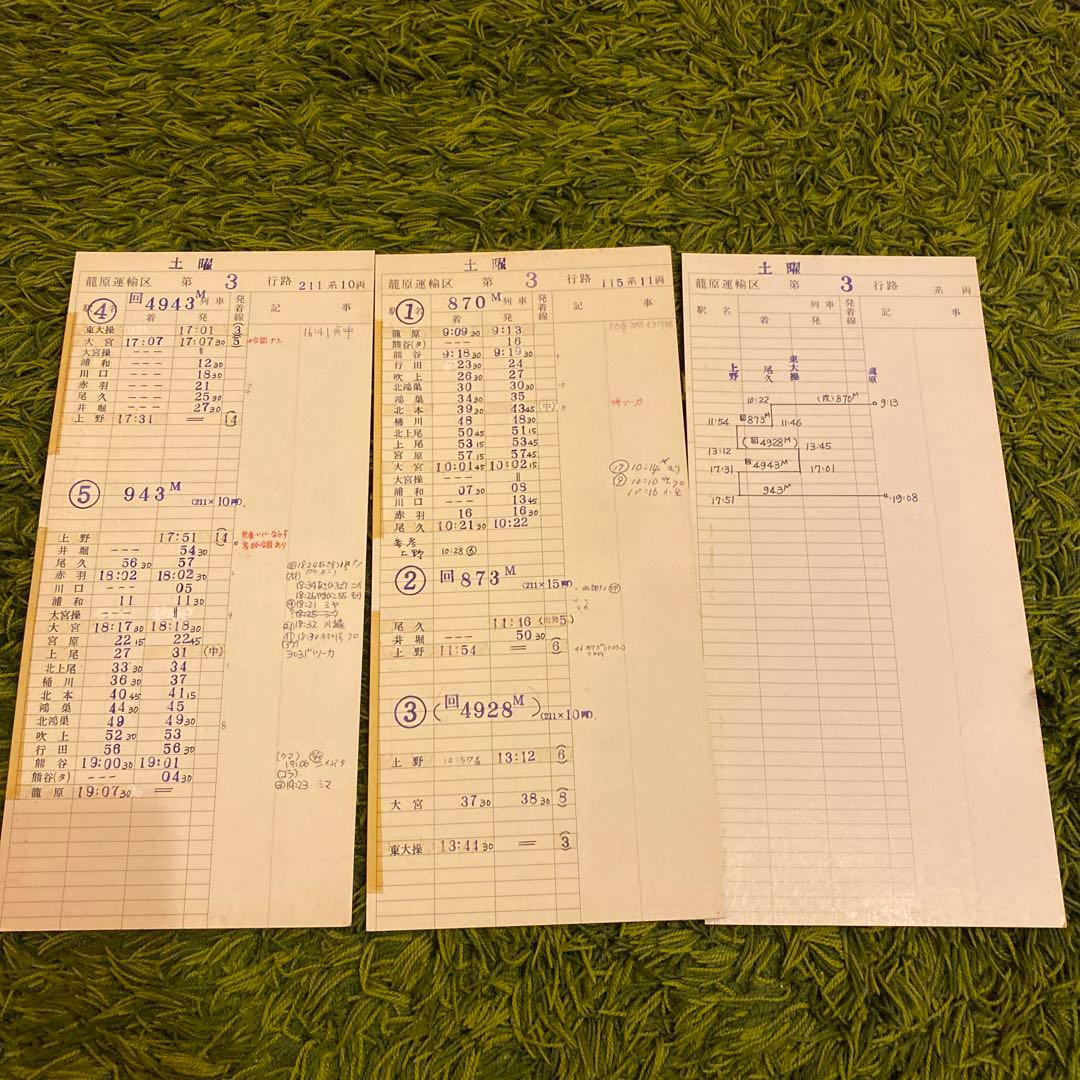 土曜
籠原運輸区 第 3 行路 211系10両
駅名 ④ 回4943M 列車 着 発 発着線 記事
東大操 17:01 3
大宮 17:07 17:0730 5
大宮操 --- ||
浦和 1230
川口 1830
赤羽 21
尾久 2530
井堀 --- 2730
上野 17:31 == 14
⑤ 943M (211×10両)
上野 17:51 14
井堀 --- 5430
尾久 5630 57
赤羽 18:02 18:0230
川口 --- 05
浦和 11 1130
大宮操 --- ||
大宮 18:1730 18:1830
宮原 2215 2245
上尾 27 31 (中)
北上尾 3330 34
桶川 3630 37
北本 4045 4115
鴻巣 4430 45
北鴻巣 49 4930
吹上 5230 53
行田 56 5630
熊谷 19:0030 19:01
熊谷(タ) --- 0430
籠原 19:0730 ==
18:21 ミヤ
18:32 川越
19:06
19:23 ミマ
土曜
籠原運輸区 第 3 行路 115系11両
駅名 ① 870M 列車 着 発 発着線 記事
籠原 9:0930 9:13
熊谷(タ) --- 16
熊谷 9:1830 9:1930
行田 2330 24
吹上 2630 27
北鴻巣 30 3030
鴻巣 3430 35
北本 3930 4345 (中)
桶川 48 4830
北上尾 5045 5115
上尾 5315 5345
宮原 5715 5745
大宮 10:0145 10:0215
大宮操 --- ||
浦和 0730 08
川口 --- 1345
赤羽 16 1630
尾久 10:2130 10:22
参考
上野 10:28 ⑥
② 回873M (211×15両)
尾久 11:46 (出発5)
井堀 --- 5030
上野 11:54 == 6
③ (回4928M) (211×10両)
上野 13:12 6
大宮 3730 3830 8
東大操 13:4430 == 3
土曜
籠原運輸区 第 3 行路 系 両
駅名 列車 着 発 発着線 記事
上野 尾久 東大操 籠原
10:22 870M 9:13
11:54 回873M 11:46
(回4928M) 13:45
13:12
17:31 回4943M 17:01
17:51 943M 19:08